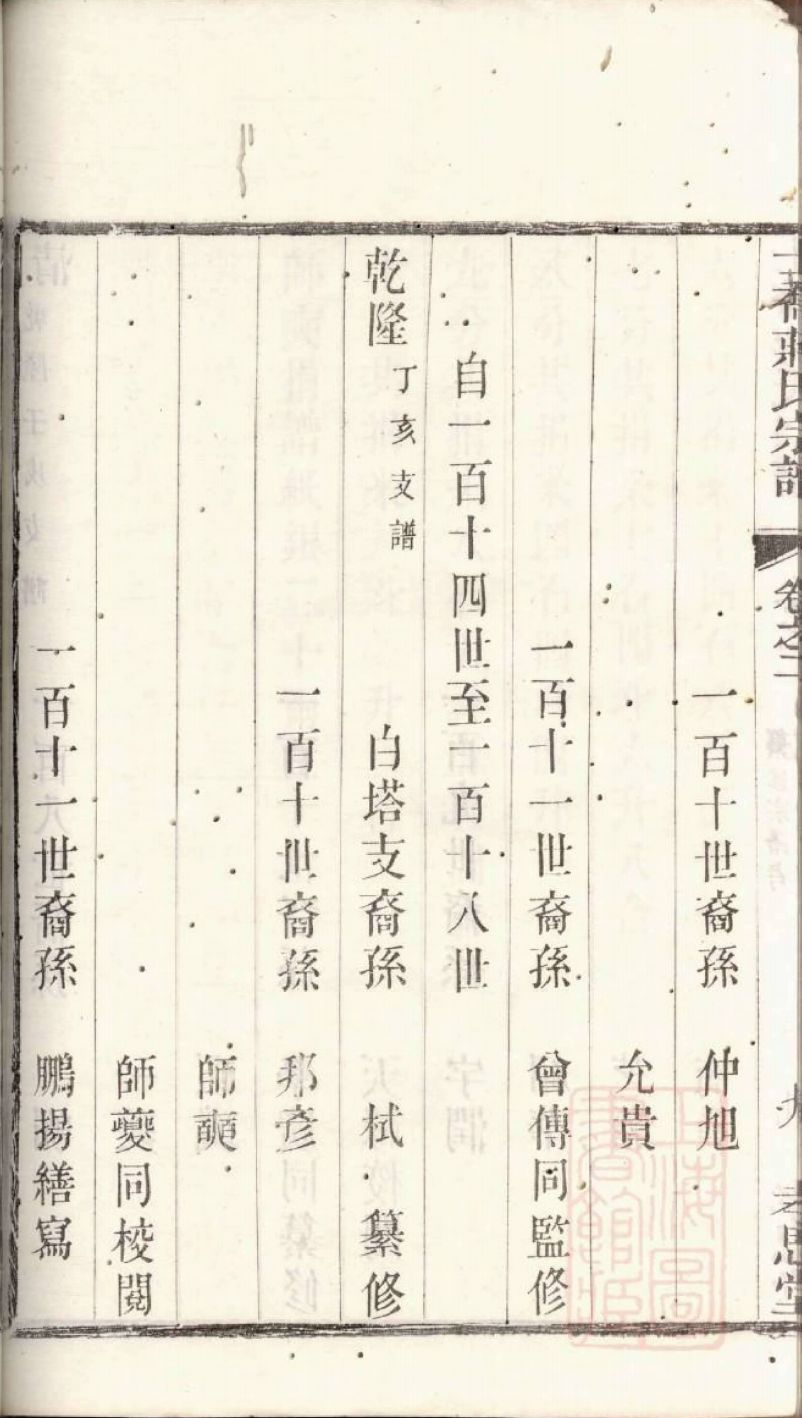 蔣氏宗譜 卷之 九 孝思堂
一百十世裔孫 仲旭
允貴
一百十一世裔孫 曾傳同監修
自一百十四世至一百十八世
乾隆丁亥支譜 白塔支裔孫 栻 纂修
一百十世裔孫 邦彥
師頤
師夔同校閱
一百十一世裔孫 鵬揚繕寫
上海圖書館藏